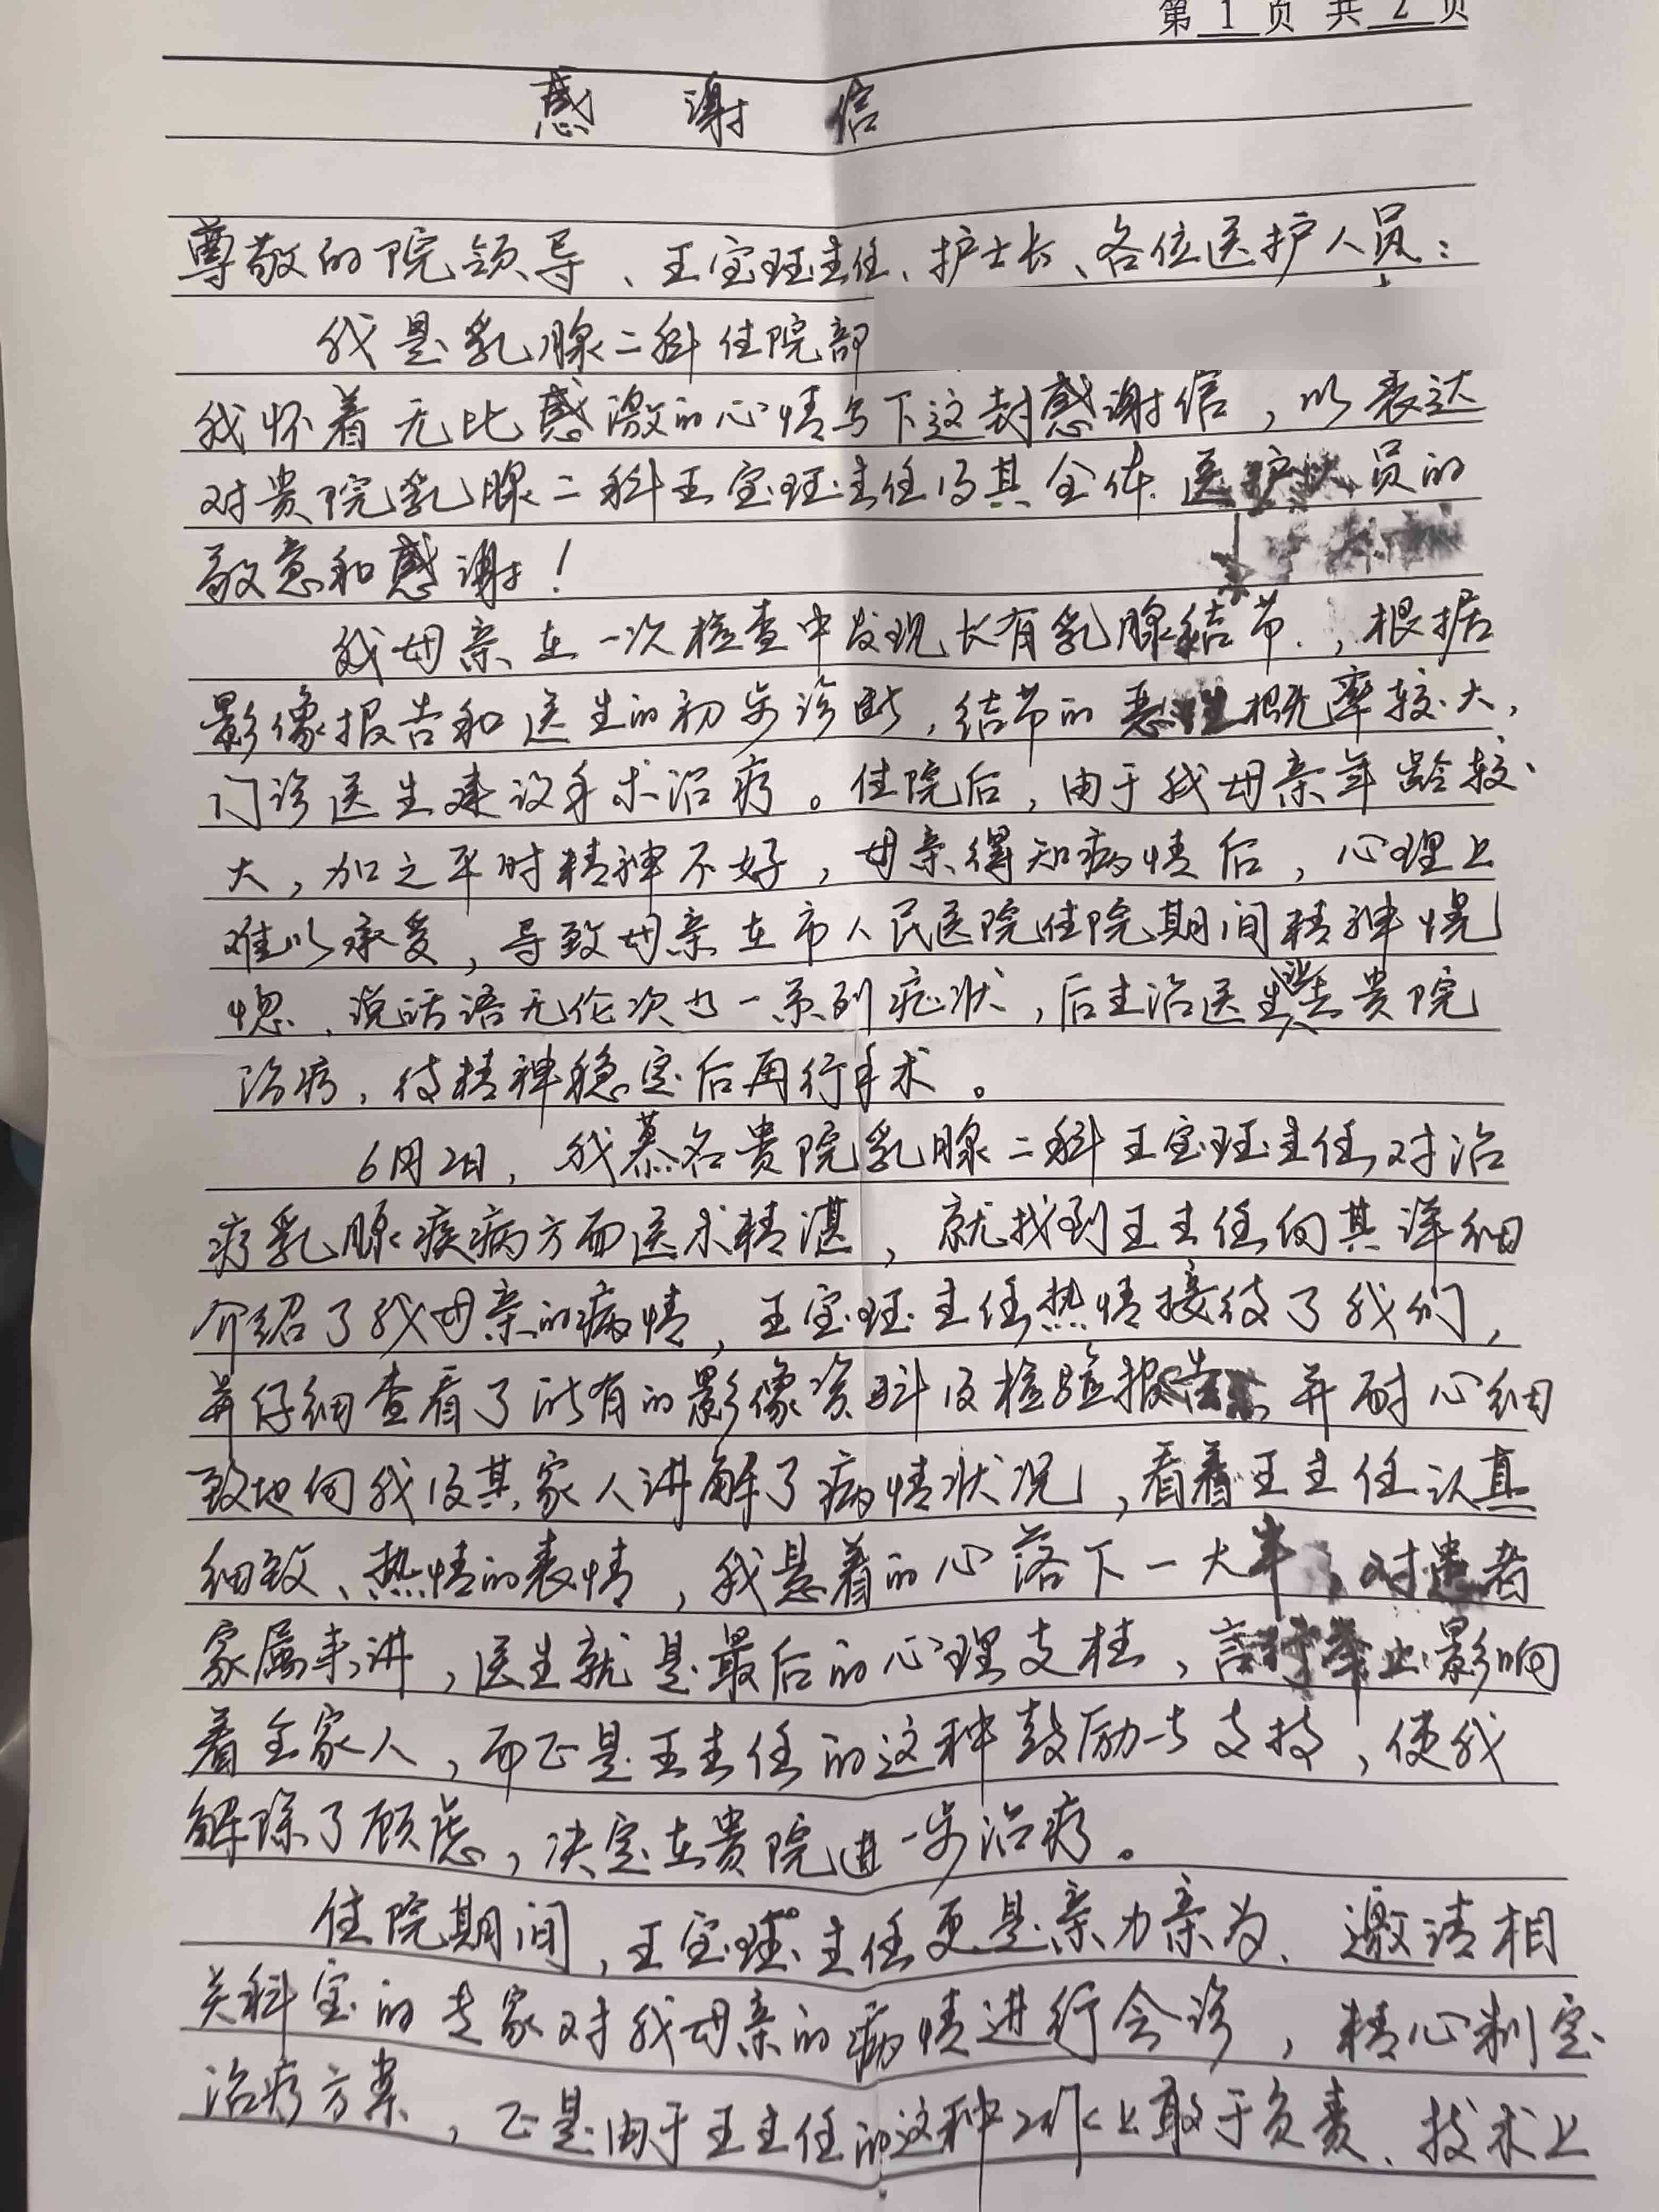 第 1 页 共 2 页
感 谢 信
尊敬的院领导、王宝珏主任、护士长、各位医护人员：
我是乳腺二科住院部
我怀着无比感激的心情写下这封感谢信，以表达
对贵院乳腺二科王宝珏主任及其全体医护人员的
敬意和感谢！
我母亲在一次检查中发现长有乳腺结节，根据
影像报告和医生的初步诊断，结节的恶性概率较大，
门诊医生建议手术治疗。住院后，由于我母亲年龄较
大，加之平时精神不好，母亲得知病情后，心理上
难以承受，导致母亲在市人民医院住院期间精神恍
惚、说话语无伦次为一系列症状，后主治医生 去贵院
治疗，待精神稳定后再行手术。
6月2日，我慕名贵院乳腺二科王宝珏主任对治
疗乳腺疾病方面医术精湛，就找到王主任向其详细
介绍了我母亲的病情，王宝珏主任热情接待了我们，
并仔细查看了所有的影像资料及检验报告，并耐心细
致地向我及其家人讲解了病情状况，看着王主任认真
细致、热情的表情，我悬着的心落下一大半，对患者
家属来讲，医生就是最后的心理支柱，言行举止影响
着全家人，而正是王主任的这种鼓励与支持，使我
解除了顾虑，决定在贵院进一步治疗。
住院期间，王宝珏主任更是亲力亲为、邀请相
关科室的专家对我母亲的病情进行会诊，精心制定
治疗方案，正是由于王主任的这种工作上敢于负责、技术上